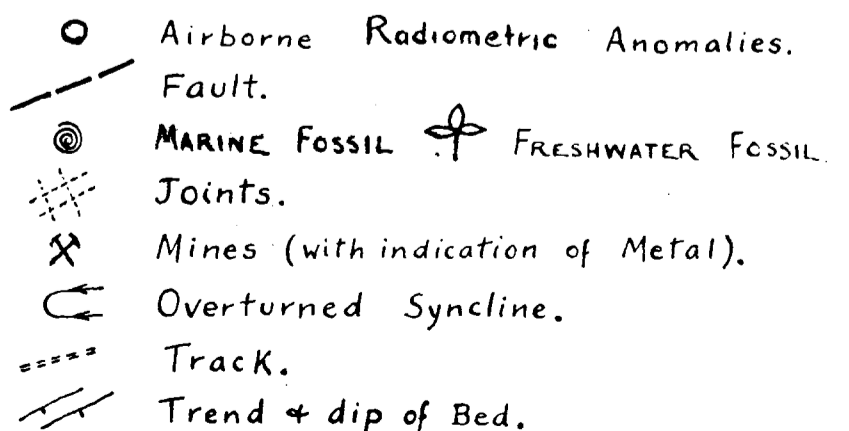 Airborne Radiometric Anomalies.
Fault.
MARINE FOSSIL FRESHWATER FOSSIL.
Joints.
Mines (with indication of Metal).
Overturned Syncline.
Track.
Trend & dip of Bed.